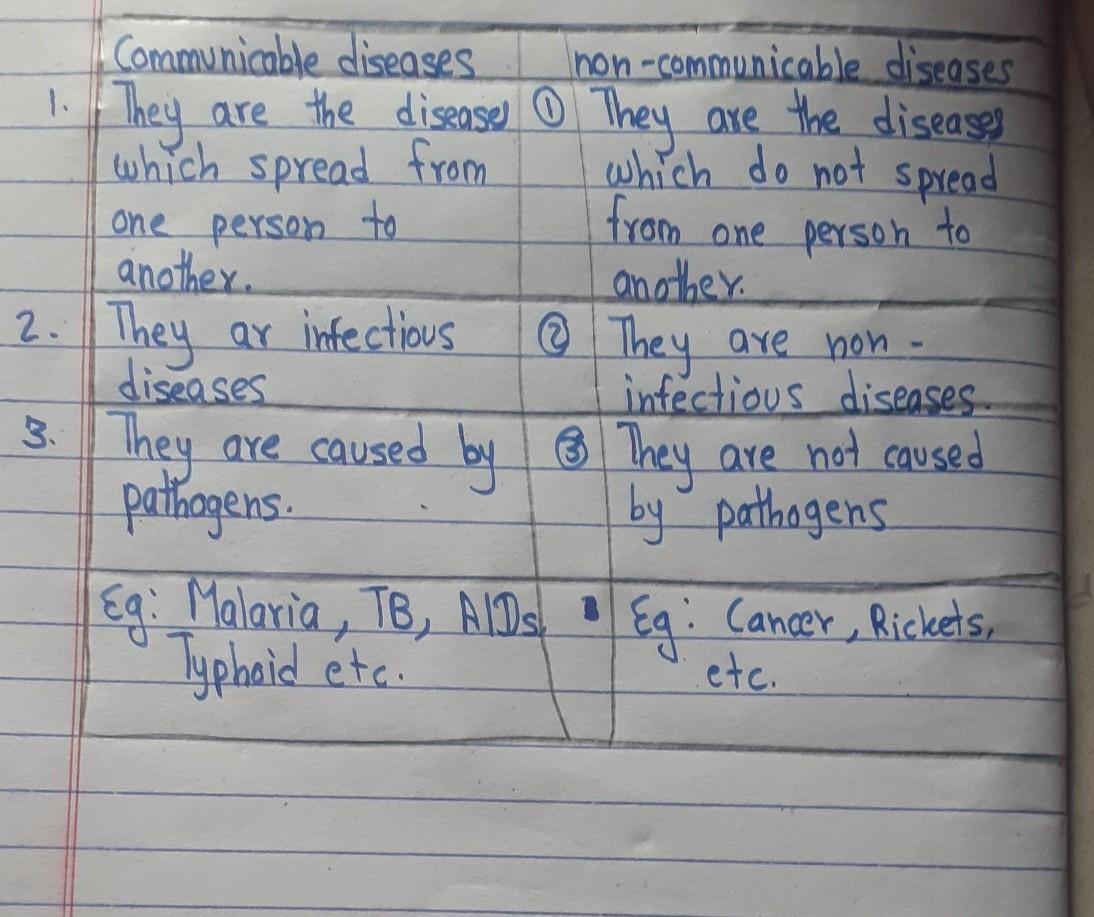 Communicable diseases
non-communicable diseases
1. They are the diseases
which spread from
one person to
another.
① They are the diseases
which do not spread
from one person to
another.
2. They ar infectious
diseases
② They are non-
infectious diseases.
3. They are caused by
pathogens.
③ They are not caused
by pathogens
Eg: Malaria, TB, AIDs,
Typhoid etc.
Eg: Cancer, Rickets,
etc.